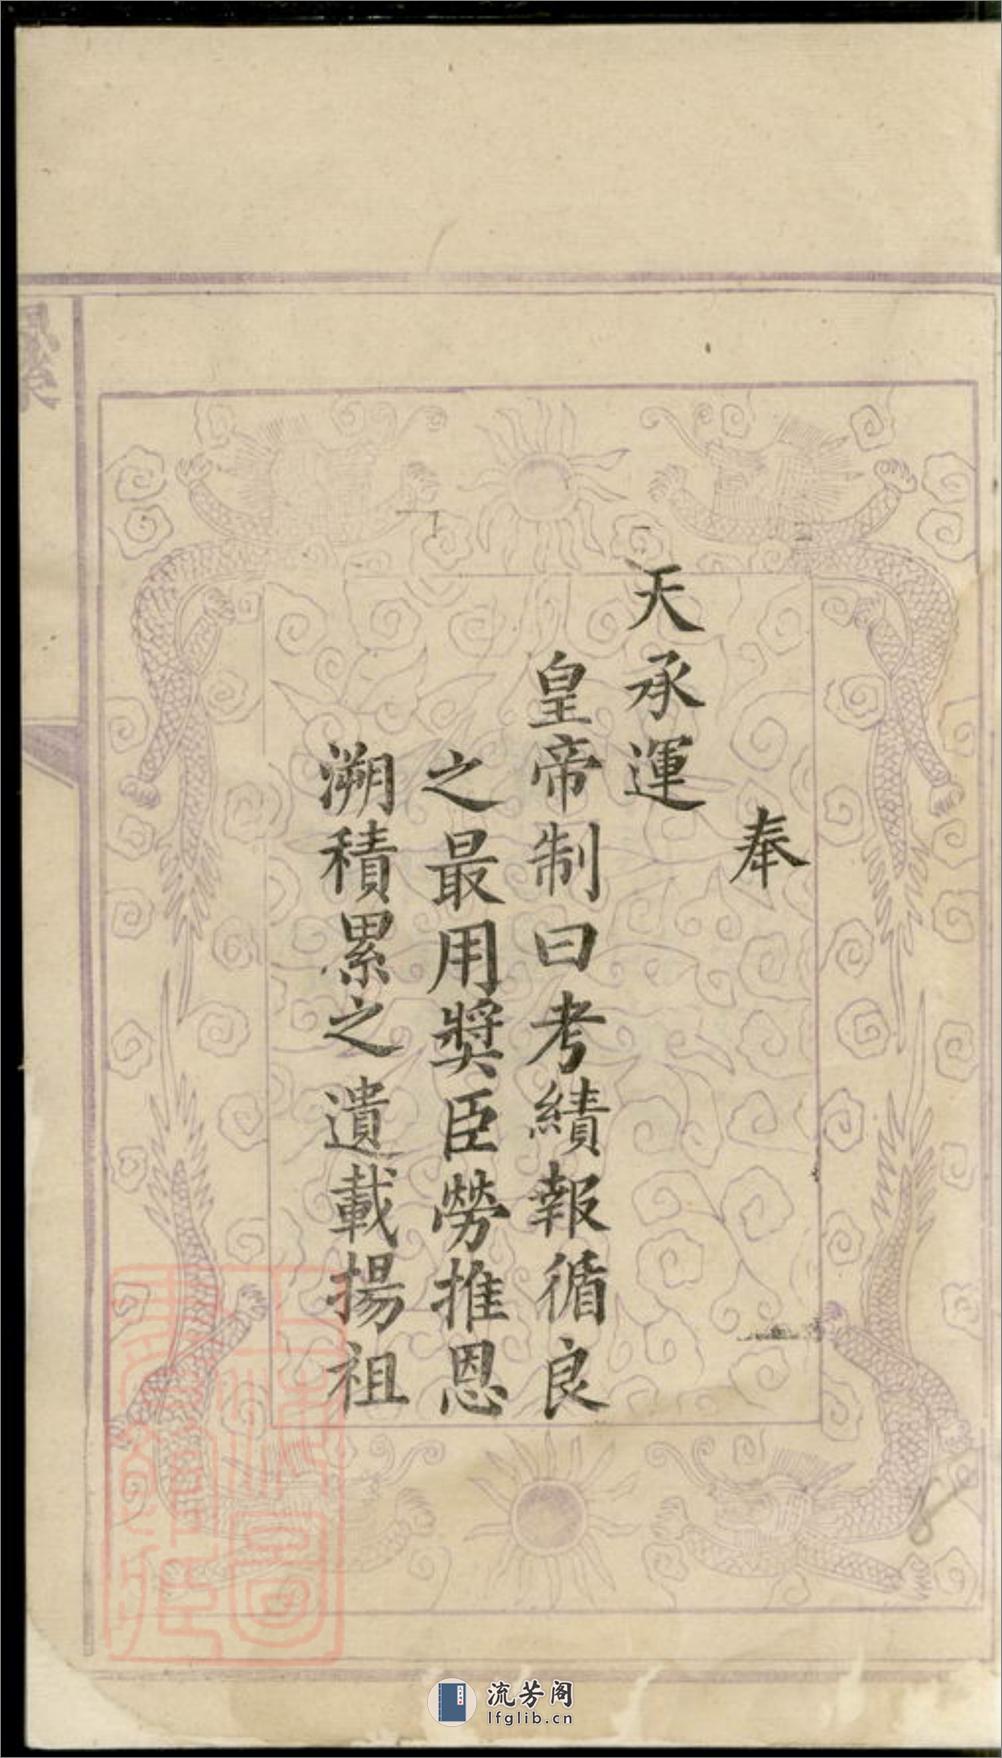 奉
天承運
皇帝制曰考績報循良
之最用獎臣勞推恩
溯積累之遺載揚祖
流芳阁
lfglib.cn